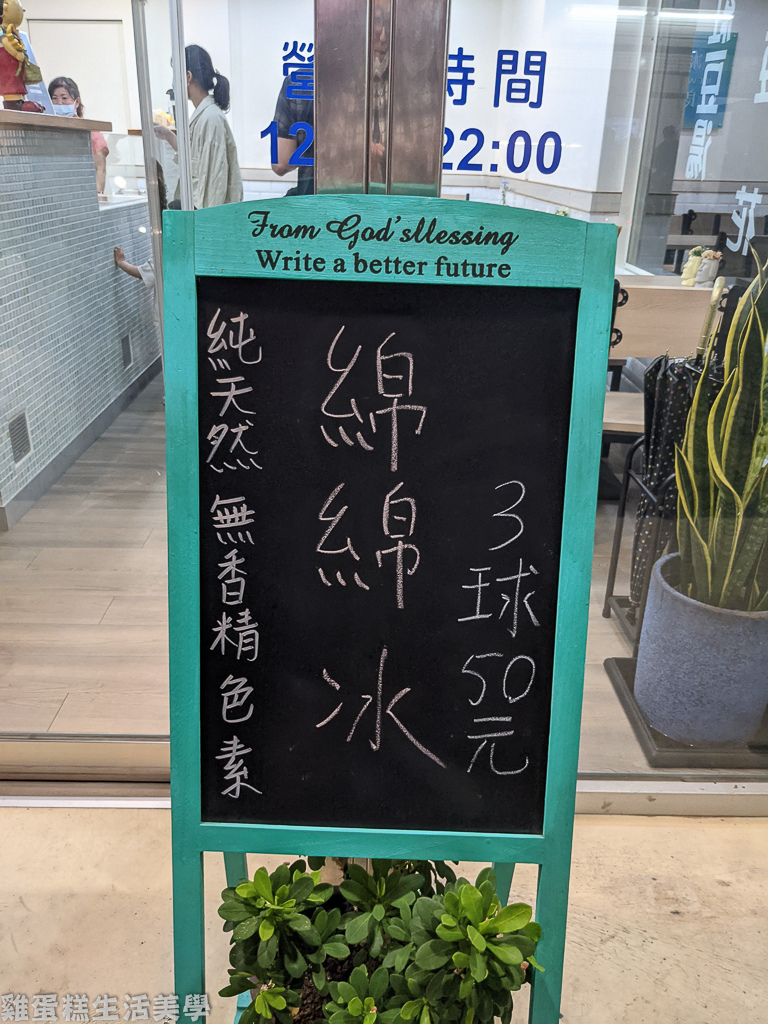 營 時間
12 22:00
From God'sllessing
Write a better future
3球50元
綿綿冰
純天然無香精色素
豆湯
花
雞蛋糕生活美學